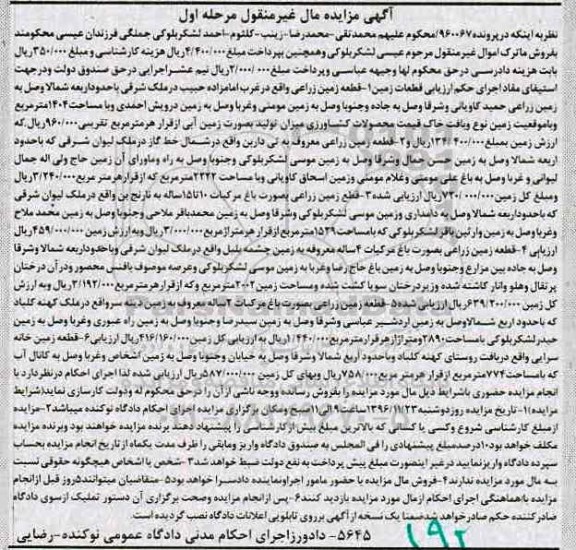 آگهی مزایده مال غیرمنقول مرحله اول
نظربه اینکه درپرونده۹۶۰۰۶۷/محکوم علیهم محمدتقی-محمدرضا-زینب-کلثوم-احمد لشکربلوکی جملگی فرزندان عیسی محکومند
بفروش ماترک اموال غیرمنقول مرحوم عیسی لشکربلوکی وهمچنین بپرداخت مبلغ۴/۴۰۰/۰۰۰ریال هزینه کارشناسی و مبلغ ۳۵۰/۰۰۰ریال
بابت هزینه دادرسی در حق محکوم لها وجیهه عباسی وپرداخت مبلغ ۲/۰۰۰/۰۰۰ریال نیم عشراجرایی درحق صندوق دولت ودرجهت
استیفای مفاد اجرای حکم ارزیابی قطعات زمین۱-قطعه زمین زراعی واقع درغرب امامزاده حبیب درملک شرقی باحدوداربعه شمالا وصل به
زمین زراعی حمید کاویانی وشرقا وصل به جاده وجنوبا وصل به زمین مومنی وغربا وصل به زمین درویش احمدی وبا مساحت۱۴۰۴مترمربع
وباموقعیت زمین نوع وبافت خاک قیمت محصولات کشاورزی میزان تولید بصورت زمین آبی ازقرار هرمترمربع تقریبی۹۶۰/۰۰۰ریال.که
ارزش زمین بمبلغ۱۳۴/۴۰۰/۰۰۰ریال و۲-قطعه زمین زراعی معروف به تی دارین واقع درشمال خط گاز درملک لیوان شرقی که باحدود
اربعه شمالا وصل به زمین حسن جمال وشرقا وصل به زمین موسی لشکربلوکی وجنوبا وصل به راه وماورای آن زمین حاج وله اله جمال
لیوانی و غربا وصل به باغ علی مومنی وغلام مومنی وزمین اسحاق کاویانی وبا مساحت ۲۲۲۲ مترمربع که ازقرارهرمتر مربع۳/۲۴۰/۰۰۰ریال
ومبلغ کل زمین۷۲۰/۰۰۰/۰۰۰ریال ارزیابی شده ۳-قطعه زمین زراعی بصورت باغ مرکبات ۱۰تا۱۵ساله به نارنج بن واقع درملک لیوان شرقی
که باحدوداربعه شمالا وصل به دامداری وزمین موسی لشکربلوکی وشرقا وصل به زمین محمدباقر ملاحی وجنوبا وصل به زمین محمد ملاح
وغربا وصل به زمین وارثین باقرلشکربلوکی که بامساحت۱۵۲۹مترمربع ازقرار هرمترازمربع۳/۰۰۰/۰۰۰ریال وبه ارزش زمین ۴۵۹/۰۰۰/۰۰۰ریال
ارزیابی ۴-قطعه زمین زراعی بصورت باغ مرکبات ۴ساله معروفه به زمین چشمه بلبل واقع درملک لیوان شرقی وباحدوداربعه شمالا وشرقا
وصل به جاده بین مزارع وجنوبا وصل به زمین باغ حاج رضا وغربا به زمین موسی لشکربلوکی وعرصه موصوف بافنس محصور ودرآن درختان
پرتقال وهلو وانار کاشته شده وزیردرختان سویا کشت شده ومساحت زمین۲۰۰۲مترمربع وکه ازقرار هرمترمربع۳/۱۹۲/۰۰۰ریال وبه ارزش
کل زمین ۶۳۹/۲۰۰/۰۰۰ریال ارزیابی شده۵-قطعه زمین زراعی بصورت باغ مرکبات ۲ساله معروف به زمین دیمه سرواقع درملک کهنه کلباد
که باحدود اربع شمالاوصل به زمین اردشیر عباسی وشرقا وصل به زمین سیدرضا وجنوبا وصل به زمین راه عبوری وغربا وصل به زمین
حیدرلشکربلوکی بامساحت۲۸۹۰مترازازهرقرارمترمربع۱/۴۴۰/۰۰۰ریال به ارزیابی کل زمین۴۱۶/۱۶۰/۰۰۰ریال ارزیابی۶-قطعه زمین خانه
سرایی واقع دربافت روستای کهنه کلباد وباحدود اربع شمالا و شرقا وصل به خیابان وجنوبا وصل به زمین اشخاص وغربا وصل به کانال آب
که بامساحت۷۷۴مترمربع ازقرار هرمتر مربع۷۵۸/۰۰۰ریال وبهای کل زمین ۵۸۷/۰۰۰/۰۰۰ریال ارزیابی شده لذا اجرای احکام درنظردارد با
انجام مزایده حضوری باشرایط ذیل مال مورد مزایده را بفروش رسانده ووجه ناشی ازآن را درحق محکوم له ودولت کارسازی نماید(شرایط
مزایده)۱-تاریخ مزایده روزدوشنبه۱۳۹۶/۱۱/۲۳ساعت۹الی۱۱صبح ومکان برگزاری مزایده اجرای احکام دادگاه نوکنده میباشد۲-مزایده
از مبلغ کارشناسی شروع وکسی یا کسانی که بالاترین مبلغ بیش ازکارشناسی را پیشنهاد دهند برنده مزایده خواهند بود وبرنده مزایده
مکلف خواهد بود۱۰درصدمبلغ پیشنهادی را فی المجلس به صندوق دادگاه واریز ومابقی را ظرف مدت یکماه ازتاریخ انجام مزایده بحساب
سپرده دادگاه واریزنمایید درغیر اینصورت مبلغ پیش پرداخت به نفع دولت ضبط خواهدشد۳-شخص یااشخاص هیچگونه حقوقی نسبت
به مال مورد مزایده ندارند۴-فروش مال مزایده با حضور مامور اجراونماینده دادسرا خواهد بود۵-متقاضیان میتوانند۵روز قبل ازانجام
مزایده باهماهنگی اجرای احکام ازمال مورد مزایده بازدید کنند۶-پس ازانجام مزایده وصحت برگزاری آن دستور تملیک ازسوی دادگاه
صادرکننده حکم صادرخواهدشدضمنا یک نسخه ازآگهی برروی تابلویی اعلانات دادگاه نصب گردیده است.
۵۶۴۵- دادورزاجرای احکام مدنی دادگاه عمومی نوکنده-رضایی
۱۹۲